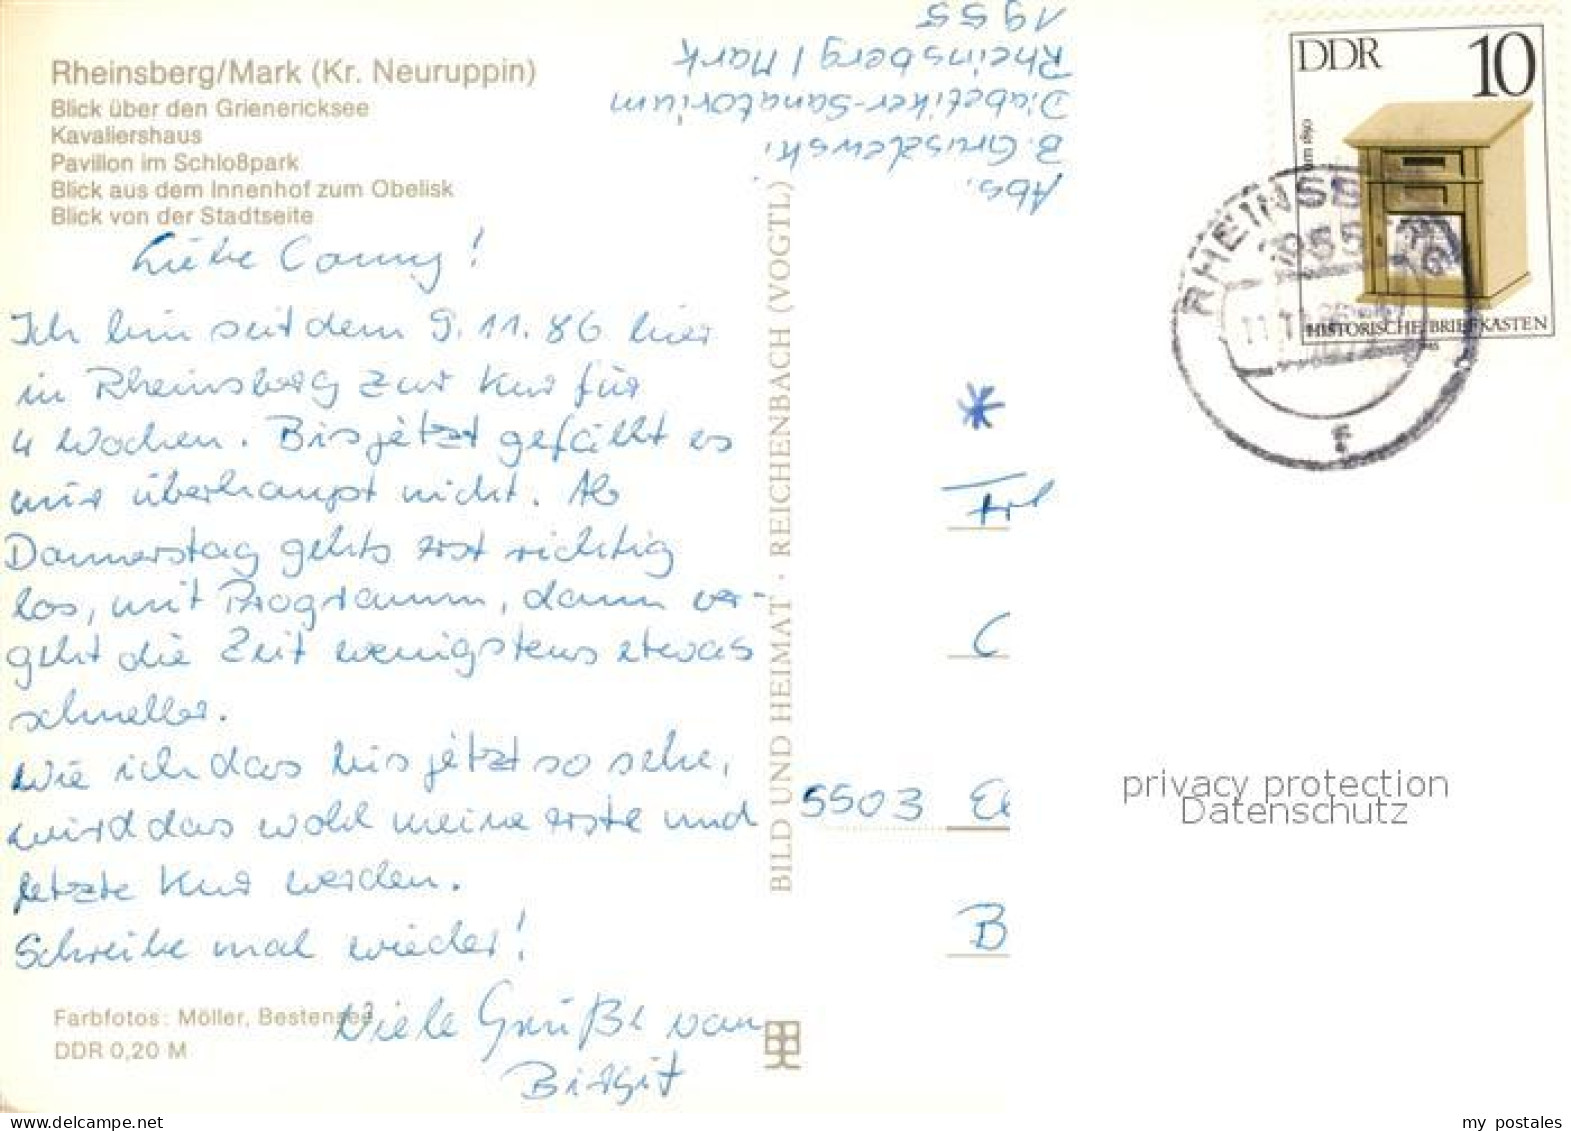 Rheinsberg/Mark (Kr. Neuruppin)
Blick über den Grienericksee
Kavaliershaus
Pavillon im Schloßpark
Blick aus dem Innenhof zum Obelisk
Blick von der Stadtseite
Liebe Conny!
Ich bin seit dem 9.11.86 hier
in Rheinsberg zur Kur für
4 Wochen. Bis jetzt gefällt es
mir überhaupt nicht. Ab
Donnerstag gehts erst richtig
los, mit Programm, dann ver-
geht die Zeit wenigstens etwas
schneller.
Wie ich das bis jetzt so sehe,
wird das wohl meine erste und
letzte Kur werden.
Schreibe mal wieder!
Viele Grüße von
Birgit
Farbfotos: Möller, Bestensee
DDR 0,20 M
BILD UND HEIMAT · REICHENBACH (VOGTL)
Abs.
Diabetiker-Sanatorium
Rheinsberg / Mark
1955
DDR 10
um 1890
HISTORISCHE BRIEFKASTEN
RHEINSBERG
1955
f
*
Frl
C
5503
B
privacy protection
Datenschutz
www.delcampe.net
my_postales